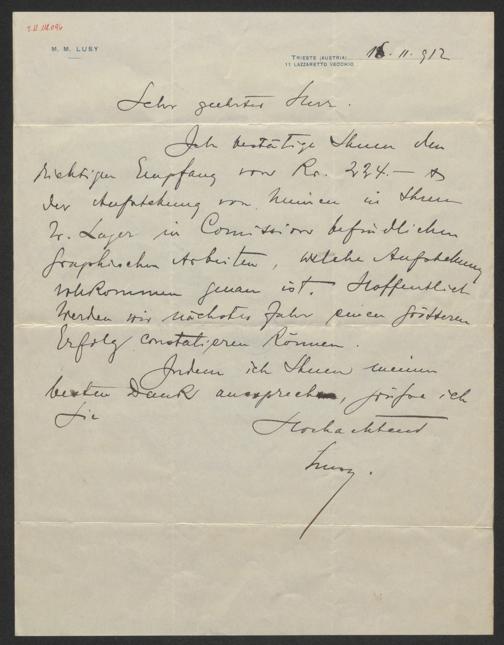 M. M. LUSY
TRIESTE (AUSTRIA) 16. 11. 912
11 LAZZARETTO VECCHIO
Sehr geehrter Herr.
Ich bestätige Ihnen den
richtigen Empfang von Kr. 224.—
der Aufstehung von meinen in Ihrem
Lager in Comission befindlichen
graphischen Arbeiten, welche Aufstehung
vollkommen genau ist. Hoffentlich
werden wir nächstes Jahr einen grösseren
Erfolg constatieren können.
Indem ich Ihnen meinen
besten Dank ausspreche, grüsse ich
Sie Hochachtend
Lusy.